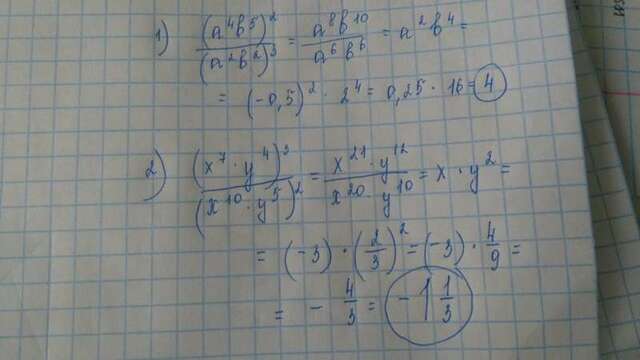 1) (a⁴b⁵)²/(a²b²)³ = a⁸b¹⁰/a⁶b⁶ = a²b⁴ =
= (-0,5)² · 2⁴ = 0,25 · 16 = 4
2) (x⁷ · y⁴)³/(x¹⁰ · y⁵)² = x²¹ · y¹²/x²⁰ · y¹⁰ = x · y² =
= (-3) · (2/3)² = (-3) · 4/9 =
= - 4/3 = -1 1/3